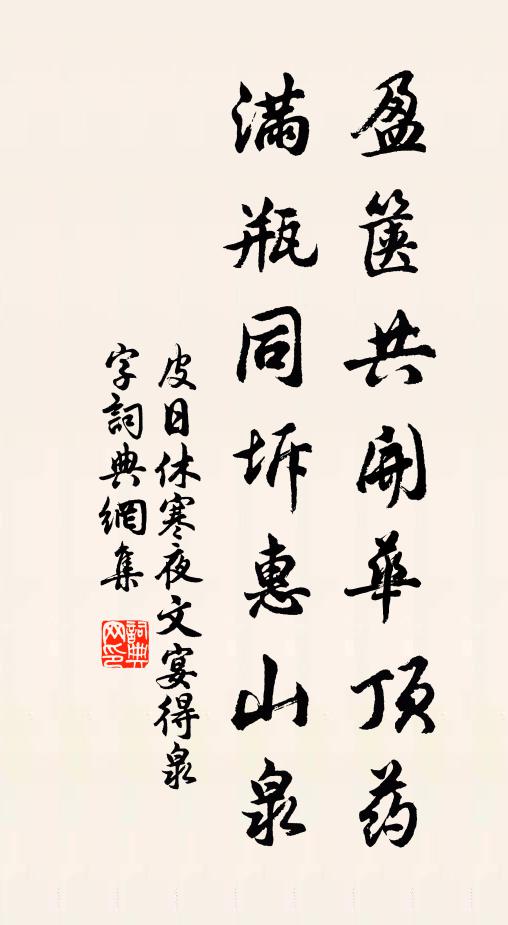 盈箧共開華頂药
满瓶同坼惠山泉
皮日休寒夜文宴得泉
字詞典網集
詞典网印